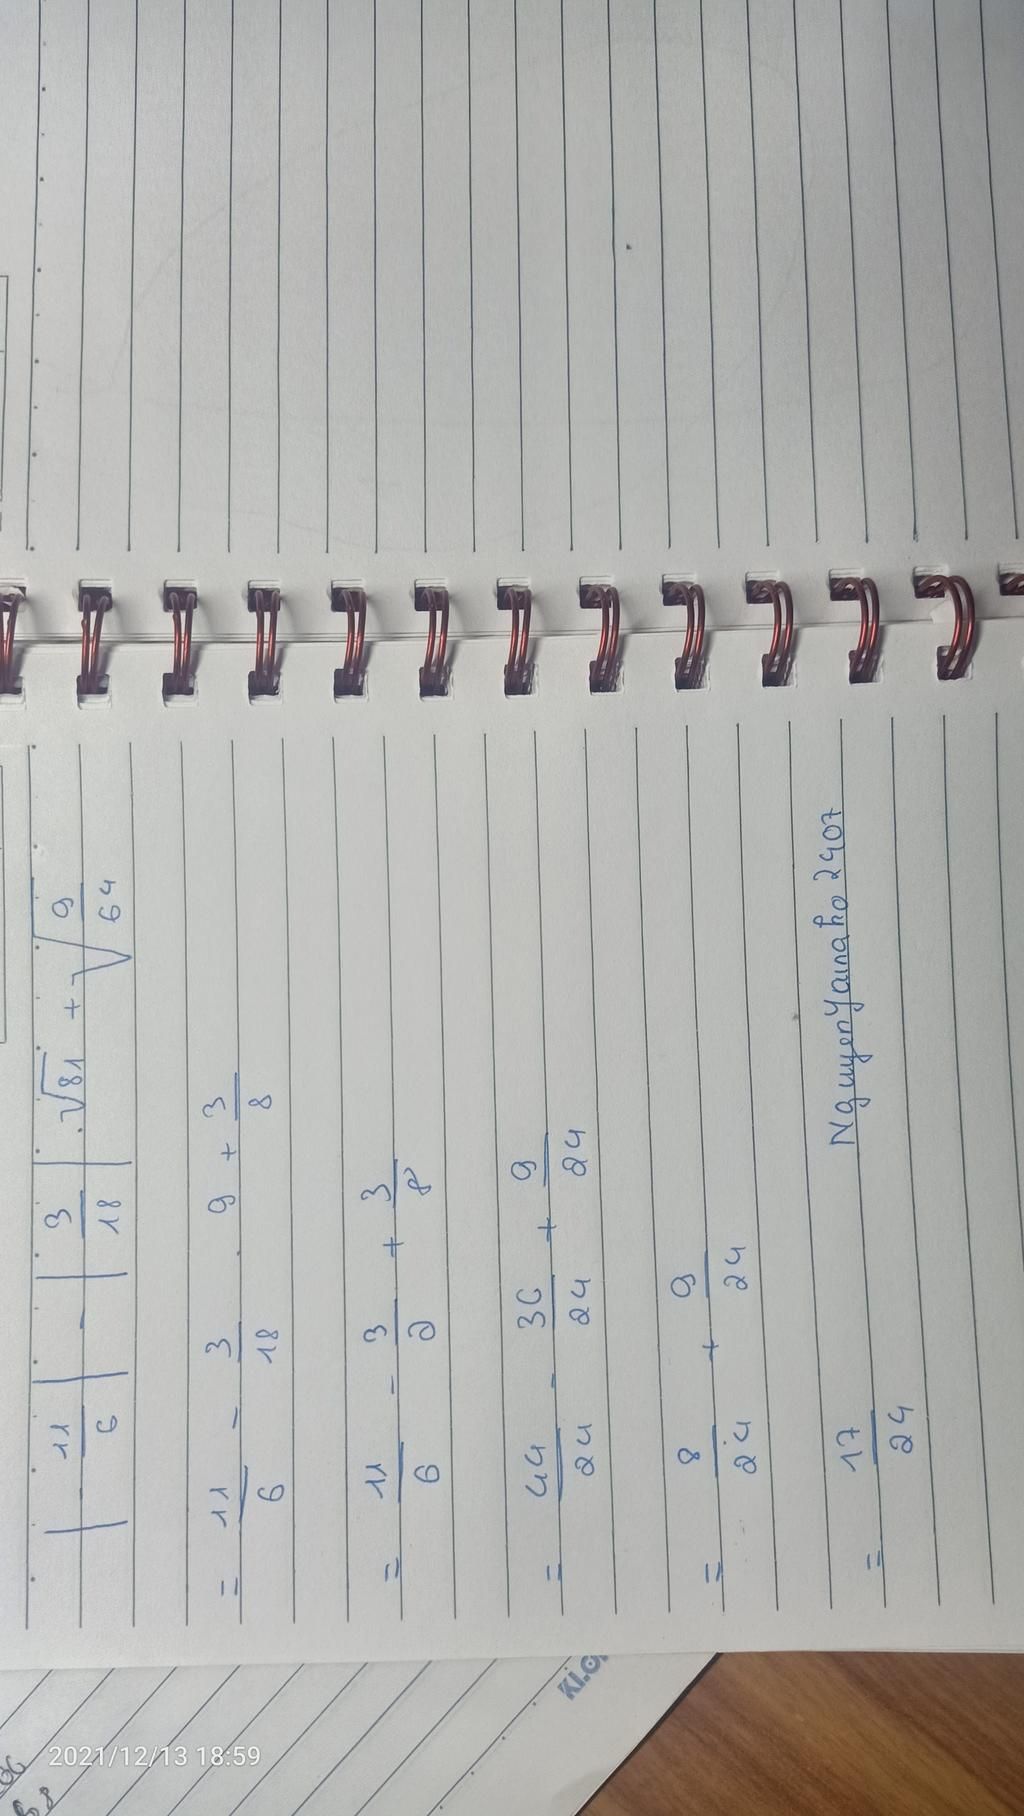 |11/6| - |3/18| . √81 + √9/64
= 11/6 - 3/18 . 9 + 3/8
= 11/6 - 3/2 + 3/8
= 44/24 - 36/24 + 9/24
= 8/24 + 9/24
= 17/24
NguyenYaina ho 2407
KI.O
2021/12/13 18:59